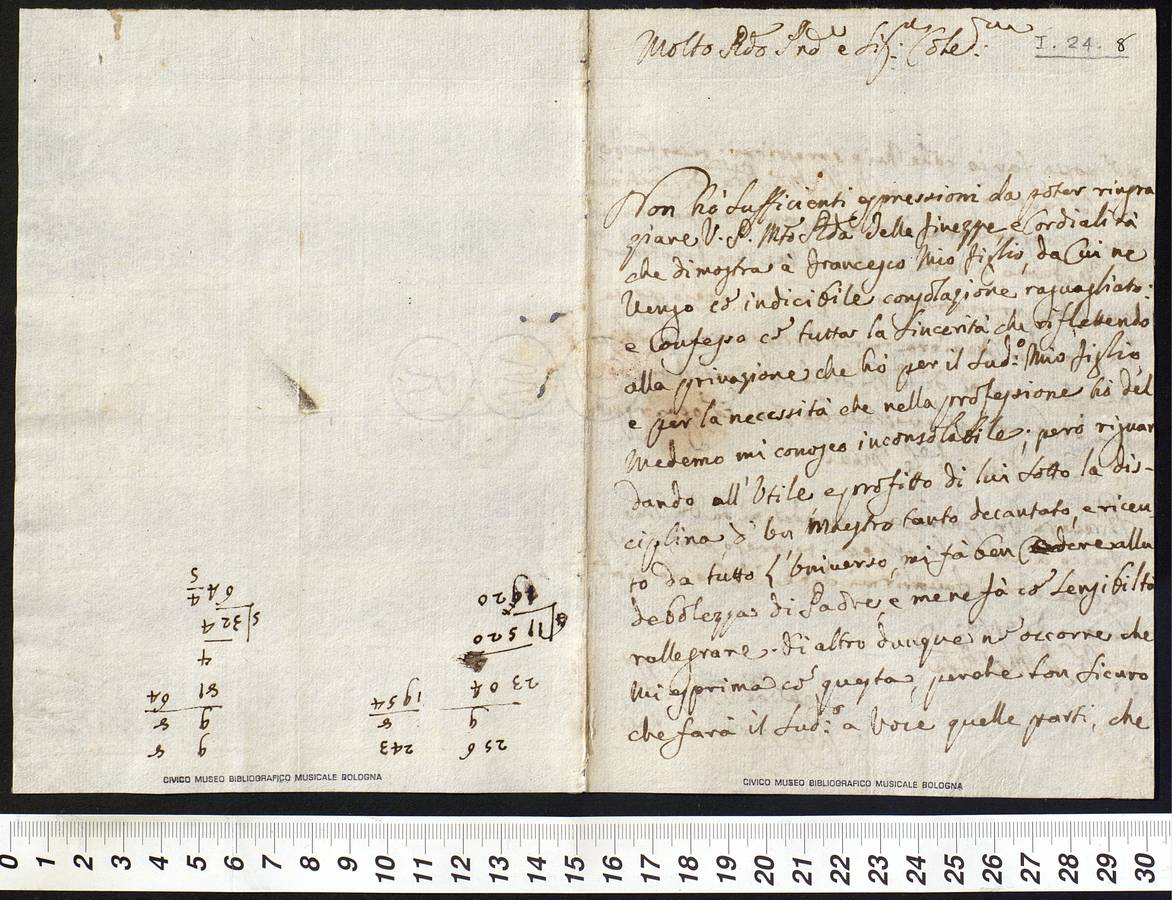 Molto Rdo Prõ e Sig: Coled:
I. 24. 8
Non hò sufficienti espressioni da poter ringra
ziare V. P. Mto Rda delle finezze e Cordialità
che dimostra à Francesco Mio figlio, da Cui ne
Vengo cõ indicibile consolazione raguagliato:
e Confesso cõ tutta la sincerità che riflettendo
alla privazione che hò per il sud:o Mio figlio,
e per la necessità che nella professione hò del
Medemo mi conosco inconsolabile; però riguar
dando all'Utile e profitto di lui sotto la dis-
ciplina d'un Maestro tanto decantato, e riceu
to da tutto l'Universo, mi fà ben Cedere alla
debolezza di Padre, e me ne fà cõ sensibiltà
rallegrare. Di altro dunque nõ occorre che
Mi esprima cõ questa, perche son sicuro
che farà il sud:o a Voce quelle parti, che
256 243
9 8
2304 1954
11520
1920
9 8
9 8
81 64
4
324
64 4
5
CIVICO MUSEO BIBLIOGRAFICO MUSICALE BOLOGNA
CIVICO MUSEO BIBLIOGRAFICO MUSICALE BOLOGNA
0 1 2 3 4 5 6 7 8 9 10 11 12 13 14 15 16 17 18 19 20 21 22 23 24 25 26 27 28 29 30